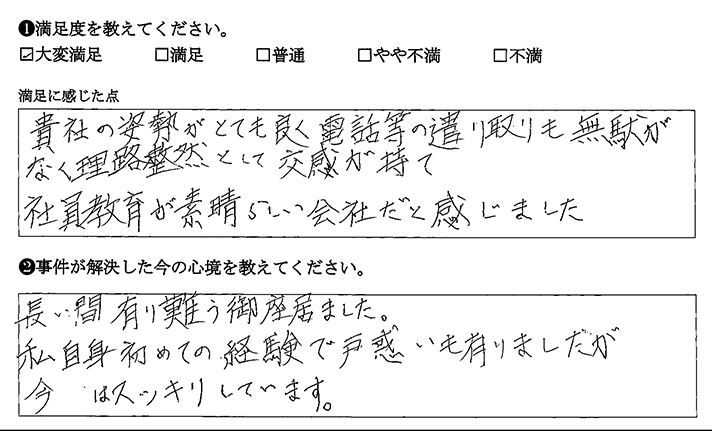 ❶満足度を教えてください。
☑大変満足 □満足 □普通 □やや不満 □不満
満足に感じた点
貴社の姿勢がとても良く電話等の遣り取りも無駄が
なく理路整然として交感が持て
社員教育が素晴らしい会社だと感じました
❷事件が解決した今の心境を教えてください。
長い間有り難う御座居ました。
私自身初めての経験で戸惑いも有りましたが
今 はスッキリしています。